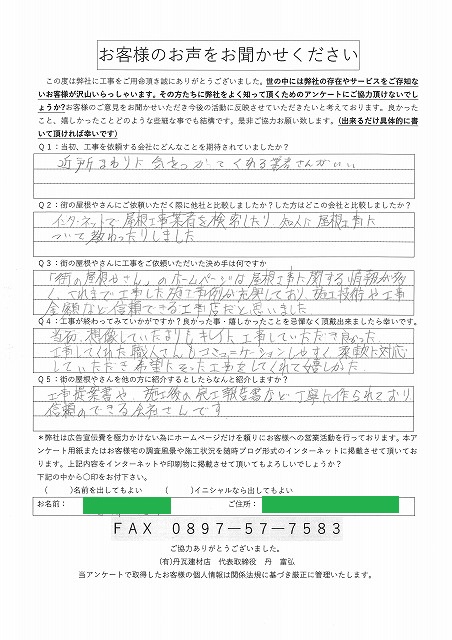 お客様のお声をお聞かせください
この度は弊社に工事をご用命頂き誠にありがとうございました。世の中には弊社の存在やサービスをご存知ない
お客様が沢山いらっしゃいます。その方たちに弊社をよく知って頂くためのアンケートにご協力頂けないでし
ょうか?お客様のご意見をお聞かせいただき今後の活動に反映させていただきたいと考えております。良かった
こと、嬉しかったことどのような些細な事でも結構です。是非ご協力お願い致します。(出来るだけ具体的に書
いて頂ければ幸いです)
Q1:当初、工事を依頼する会社にどんなことを期待されていましたか?
近所まわりに気をつかってくれる業者さんがいい
Q2:街の屋根やさんにご依頼いただく際に他社と比較しましたか?した方はどこの会社と比較しましたか?
インターネットで屋根工事業者を検索したり、知人に屋根工事に
ついて教わったりしました
Q3:街の屋根やさんに工事をご依頼いただいた決め手は何ですか
「街の屋根やさん」のホームページは屋根工事に関する情報が多
く、これまで工事した施工事例が充実しており、施工技術や工事
金額など信頼できる工事店だと思いました
Q4:工事が終わってみていかがですか?良かった事・嬉しかったことを忌憚なく頂戴出来ましたら幸いです。
当初、想像していたよりもキレイに工事していただき良かった
工事してくれた職人さんもコミュニケーションしやすく、柔軟に対応
していただき希望にそった工事をしてくれて嬉しかった
Q5:街の屋根やさんを他の方に紹介するとしたらなんと紹介しますか?
工事提案書や、施工後の完工報告書など丁寧に作られており
信頼のできる会社さんです
*弊社は広告宣伝費を極力かけない為にホームページだけを頼りにお客様への営業活動を行っております。本ア
ンケート用紙またはお客様宅の調査風景や施工状況を随時ブログ形式のインターネットに掲載させて頂いてお
ります。上記内容をインターネットや印刷物に掲載させて頂いてもよろしいでしょうか?
下記の中から〇印をお付下さい。
( )名前を出してもよい ( )イニシャルなら出してもよい
お名前: ご住所:
FAX 0897-57-7583
ご協力ありがとうございました。
(有)丹瓦建材店 代表取締役 丹 富弘
当アンケートで取得したお客様の個人情報は関係法規に基づき厳正に管理いたします。